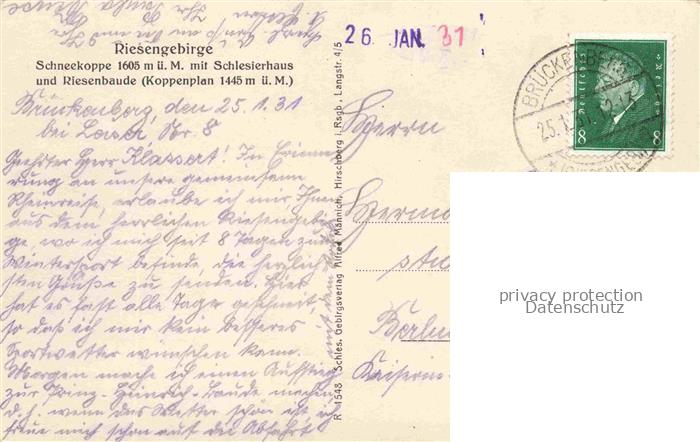 26. JAN. 31
Riesengebirge
Schneekoppe 1605 m ü. M. mit Schlesierhaus
und Riesenbaude (Koppenplan 1445 m ü. M.)
Brückenberg, den 25.1.31
bei Nr. 8
Geehrter Herr Klassert! In Erinne
rung an unsere gemeinsame
Rheinreise, erlaube ich mir Ihnen
aus dem herrlichen Riesengebir
ge, wo ich mich seit 8 Tagen zum
Wintersport befinde, die herzlich
sten Grüße zu senden. Hier
hat es fast alle Tage geschneit,
so daß ich mir kein besseres
Sportwetter wünschen kann.
Morgen mache ich einen Aufstieg
zur Prinz-Heinrich-Baude machen
d.h. wenn das Wetter schön ist ich
freue mich schon auf die Abfahrt
R 4548 Schles. Gebirgsverlag Alfred Männich, Hirschberg i. Rsgb., Langstr. 4/5
BRÜCKENBERG
25.1.31
(RIESENGEB)
Deutsches Reich
8 8
Herrn
Herma
Berlin
Kaiserin
privacy protection
Datenschutz